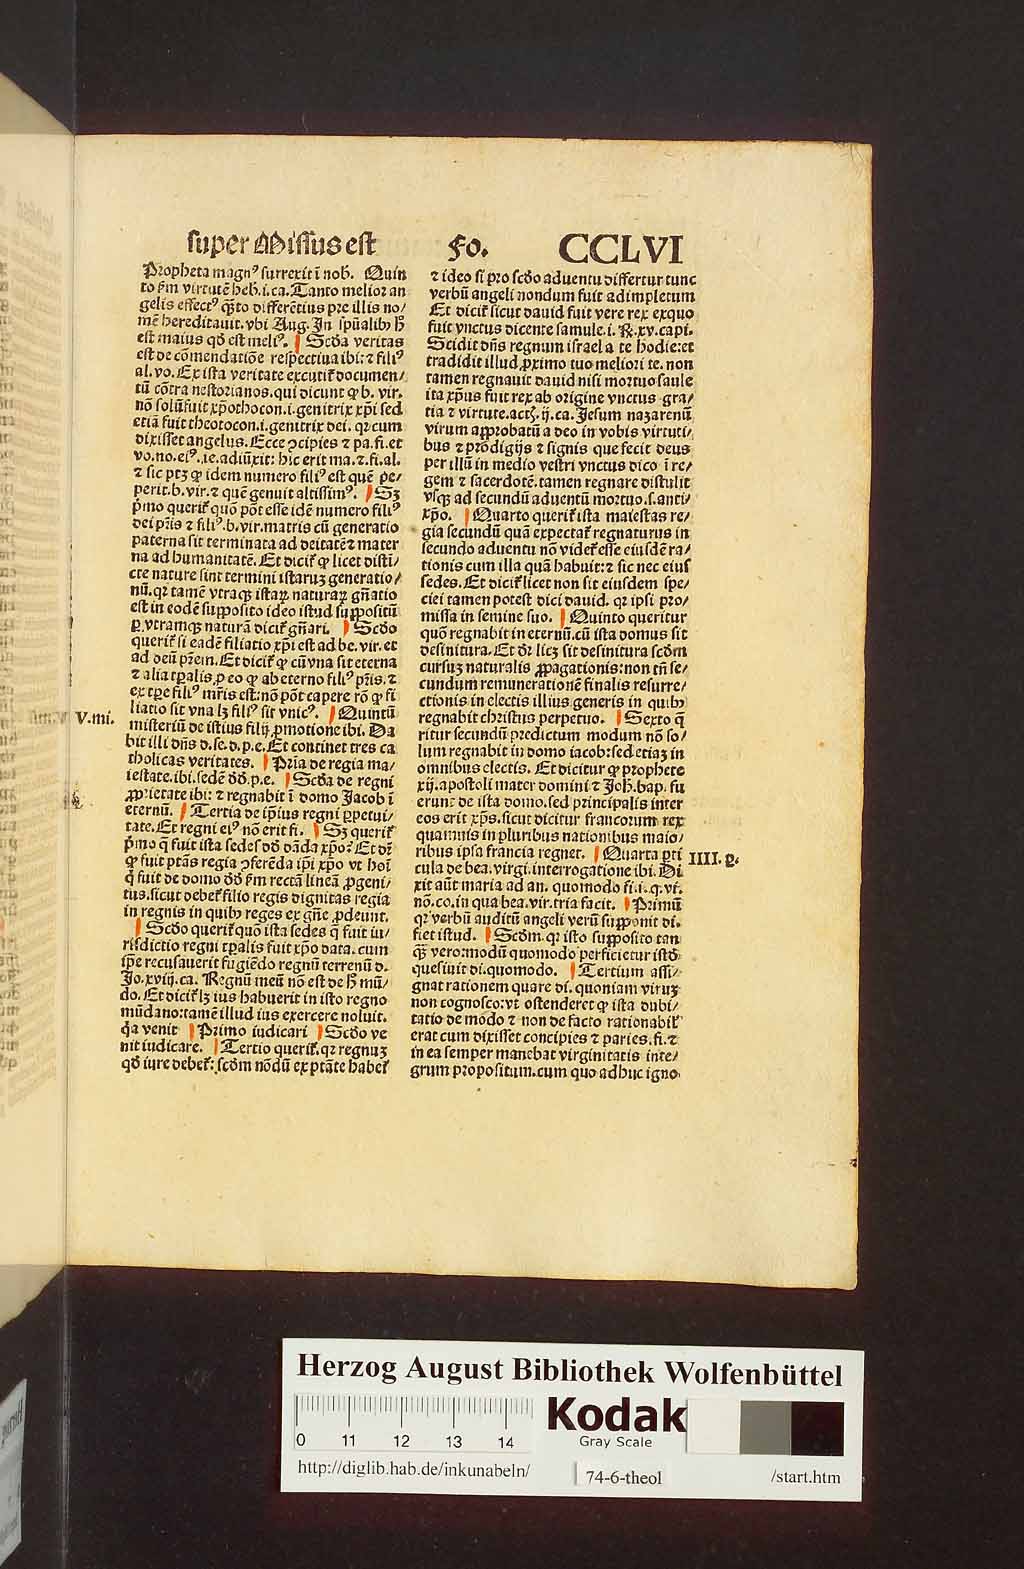 super Missus est fo. CCLVI
Propheta magnꝰ surrexit ī nob. Quin
to ẜm virtutē heb.i.ca. Tanto melior an
gelis effectꝰ q̄ȝto differētius pre illis no/
mē hereditauit. vbi Aug. In sp̄ualibꝫ h̄
est maius qd̄ est meliꝰ. Scd̄a veritas
est de cōmendatiōe respectiua ibi: ⁊ filiꝰ
al. vo. Ex ista veritate excutit̄ documen/
tū cōtra nestorianos. qui dicunt ꝙ b. vir.
nō solū fuit xp̄othocon .i. genitrix xp̄i sed
etiā fuit theotocon .i. genitrix dei. qꝛ cum
dixisset angelus. Ecce ꝯcipies ⁊ pa. fi. et
vo. no. eiꝰ. ie. adiūxit: hic erit ma. ⁊. fi. al.
⁊ sic ptꝫ ꝙ idem numero filiꝰ est quē pe/
perit. b. vir. ⁊ quē genuit altissimꝰ. Sꝫ
p̄mo querit̄ quō pōt esse idē numero filiꝰ
dei pr̄is ⁊ filiꝰ. b. vir. matris cū generatio
paterna sit terminata ad deitatē ⁊ mater
na ad humanitatē. Et dicit̄ ꝙ licet distī/
cte nature sint termini istaruꝫ generatio/
nū. qꝛ tamē vtraqꝫ istaꝝ naturaꝝ gn̄atio
est in eodē supposito ideo istud suppositū
ꝑ vtramqꝫ naturā dicit̄ gn̄ari. Scd̄o
querit̄ si eadē filiatio xp̄i est ad be. vir. et
ad deū pr̄em. Et dicit̄ ꝙ cū vna sit eterna
⁊ alia tꝑalis ꝓ eo ꝙ ab eterno filiꝰ pr̄is. ⁊
ex tꝑe filiꝰ mr̄is est: nō pōt capere rō ꝙ fi
liatio sit vna lꝫ filiꝰ sit vnicꝰ. Quintū
V. mi.
misteriū de istius filij ꝓmotione ibi. Da
bit illi dn̄s d. se. d. p. e. Et continet tres ca
tholicas veritates. Pria de regia ma/
iestate. ibi. sedē dd̄. p. e. Scd̄a de regni
ꝓprietate ibi: ⁊ regnabit ī domo Jacob ī
eternū. Tertia de ip̄ius regni ꝑpetui/
tate. Et regni eiꝰ nō erit fi. Sꝫ querit̄
p̄mo q̄ fuit ista sedes dd̄ dāda xp̄o? Et dr̄
ꝙ fuit ptās regia ꝯferēda ip̄i xp̄o vt hoī
q̄ fuit de domo dd̄ ẜm rectā lineā ꝓgeni/
tus. sicut debet̄ filio regis dignitas regia
in regnis in quibꝫ reges ex gn̄e ꝓdeunt.
Scd̄o querit̄ quō ista sedes q̄ fuit iu/
risdictio regni tꝑalis fuit xp̄o data. cum
ip̄e recusauerit fugiēdo regnū terrenū d.
Jo. xviij. ca. Regnū meū nō est de h̄ mū/
do. Et dicit̄ lꝫ ius habuerit in isto regno
mūdano: tamē illud ius exercere noluit.
q̄a venit Primo iudicari Scd̄o ve
nit iudicare. Tertio querit̄. qꝛ regnuꝫ
qd̄ iure debet̄: scd̄m nōdū ex ptāte habet̄
⁊ ideo si pro scd̄o aduentu differtur tunc
verbū angeli nondum fuit adimpletum
Et dicit̄ sicut dauid fuit vere rex exquo
fuit vnctus dicente samule. i. R. xv. capi.
Scidit dn̄s regnum israel a te hodie: et
tradidit illud ꝓximo tuo meliori te. non
tamen regnauit dauid nisi mortuo saule
ita xp̄us fuit rex ab origine vnctus gra/
tia ⁊ virtute. actꝫ. ij. ca. Jesum nazarenū
virum approbatū a deo in vobis virtuti/
bus ⁊ prodigijs ⁊ signis que fecit deus
per illū in medio vestri vnctus dico ī re/
gem ⁊ sacerdotē. tamen regnare distulit
vsqꝫ ad secundū aduentū mortuo. s. anti/
xp̄o. Quarto querit̄ ista maiestas re/
gia secundū quā expectat̄ regnaturus in
secundo aduentu nō videt̄ esse eiusdē ra/
tionis cum illa quā habuit: ⁊ sic nec eius
sedes. Et dicit̄ licet non sit eiusdem spe/
ciei tamen potest dici dauid. qꝛ ipsi pro/
missa in semine suo. Quinto queritur
quō regnabit in eternū. cū ista domus sit
desinitura. Et dr̄ licꝫ sit desinitura scd̄m
cursuꝫ naturalis ꝓpagationis: non tn̄ se/
cundum remunerationē finalis resurre/
ctionis in electis illius generis in quibꝫ
regnabit christus perpetuo. Sexto q̄
ritur secundū predictum modum nō so/
lum regnabit in domo iacob: sed etiaꝫ in
omnibus electis. Et dicitur ꝙ prophete
xij. apostoli mater domini ⁊ Joh. bap. fu
erunt de ista domo. sed principalis inter
eos erit xp̄s. sicut dicitur francorum rex
quamuis in pluribus nationibus maio/
ribus ipsa francia regnet. Quarta ꝑti
IIII. ꝑ.
cula de bea. virgi. interrogatione ibi. Di
xit aūt maria ad an. quomodo fi. i. q. vi.
nō. co. in qua bea. vir. tria facit. Primū
qꝛ verbū auditū angeli verū supponit di.
fiet istud. Scd̄m. qꝛ isto supposito tan
qꝫ vero: modū quomodo perficietur istd̄
quesiuit di. quomodo. Tertium assi/
gnat rationem quare di. quoniam viruꝫ
non cognosco: vt ostenderet ꝙ ista dubi/
tatio de modo ⁊ non de facto rationabil̄
erat cum dixisset concipies ⁊ paries. fi. ⁊
in ea semper manebat virginitatis inte/
grum propositum. cum quo adhuc igno
Herzog August Bibliothek Wolfenbüttel
0 11 12 13 14
Kodak
Gray Scale
http://diglib.hab.de/inkunabeln/ 74-6-theol /start.htm